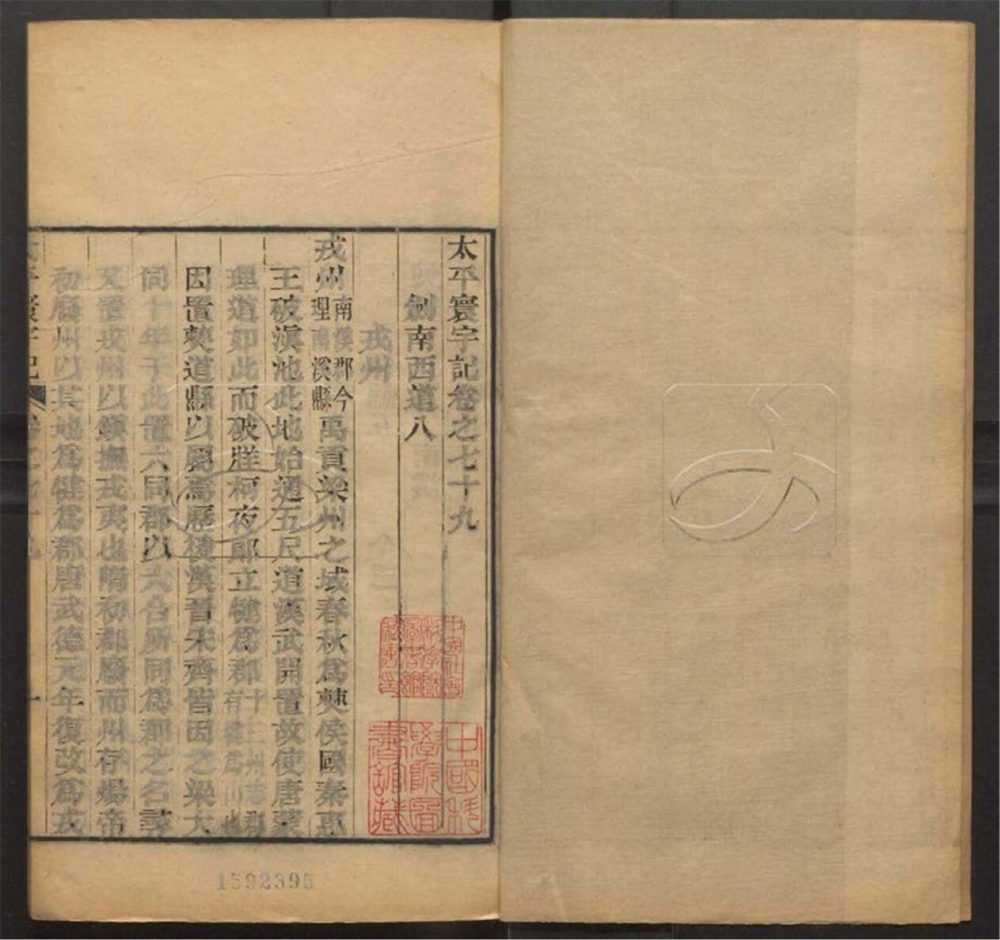 太平寰宇記卷之七十九
劍南西道八
戎州
戎州南溪郡今理南溪縣禹貢梁州之城春秋爲僰侯國秦惠
王破滇池此地始通五尺道漢武開置故使唐蒙
理道如此而破牂柯夜郎立犍爲郡
因置僰道縣以屬焉歷後漢晉宋齊皆因之梁大
同十年于此置六同郡以六合所同爲郡之名
又置戎州以鎮撫戎夷也隋初郡廢而州存煬帝
初廢州以其地爲犍爲郡唐武德元年復改爲戎
太平寰宇記 卷之七十九 一
中國科
學院圖
書館藏
1592395